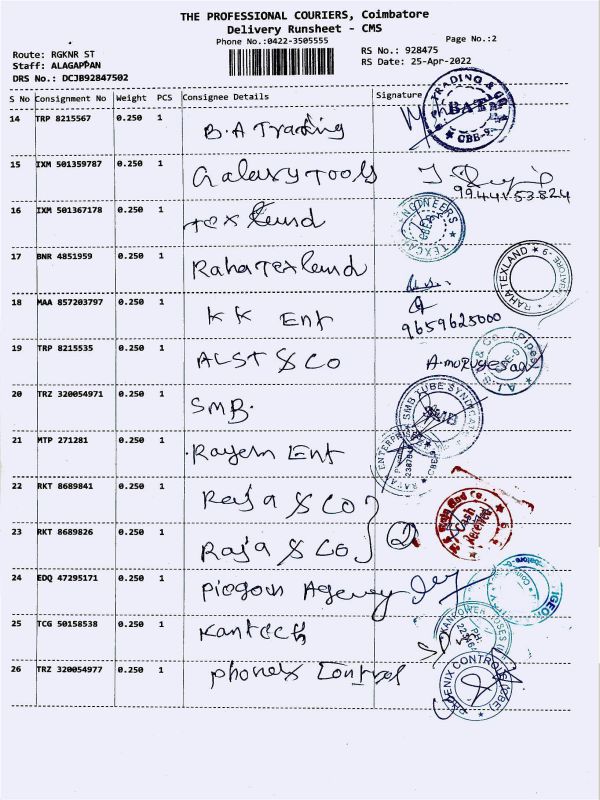 THE PROFESSIONAL COURIERS, Coimbatore
Delivery Runsheet - CMS
Phone No.:0422-3505555
Page No.:2
Route: RGKNR ST
RS No.: 928475
Staff: ALAGAPPAN
RS Date: 25-Apr-2022
DRS No.: DCJB92847502
S No Consignment No Weight PCS Consignee Details Signature
14 TRP 8215567 0.250 1 B.A Trading
TRADING & CO BAT CBE-9
15 IXM 501359787 0.250 1 Galaxy Tools
9944153824
16 IXM 501367178 0.250 1
ENGINEERS
17 BNR 4851959 0.250 1 Raha Texlend
RAHA TEXLAND
18 MAA 857203797 0.250 1 KK Ent
9659625000
19 TRP 8215535 0.250 1 ALST & Co
A. murugesan
20 TRZ 320054971 0.250 1 SMB.
SMB TUBE SYNDICATE SMB
21 MTP 271281 0.250 1
ENTERPRISES
22 RKT 8689841 0.250 1 Raja & Co
Cash Received
23 RKT 8689826 0.250 1 Raja & Co
2
24 EDQ 47295171 0.250 1 Piogon Agency
25 TCG 50158538 0.250 1 Kantech
26 TRZ 320054977 0.250 1 Phonex Control
PHOENIX CONTROLS (CBE)